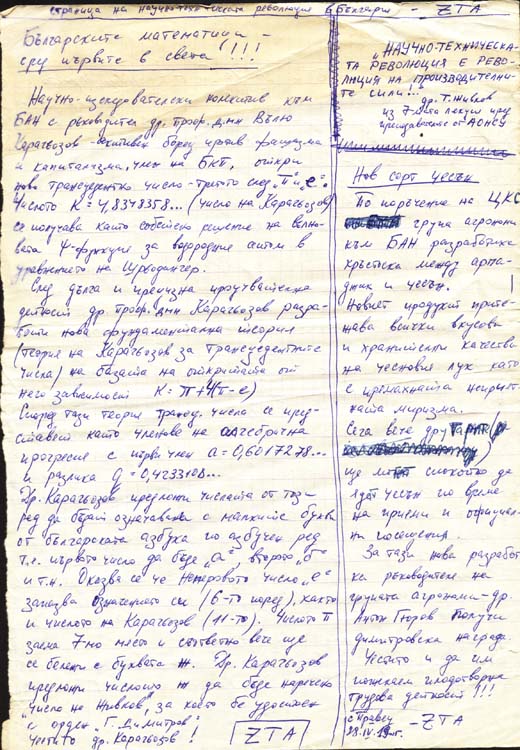 страница на научно-техническата революция в България - ZTA
Българските математици -
сред първите в света!!!
Научно-изследователски колектив към
БАН с ръководител др. проф. дмн Вълю
Карагьозов - активен борец против фашизма
и капитализма, член на БКП, откри
ново трансцедентно число - третото след "π" и "е".
Числото К = 4,8348358... (число на Карагьозов)
се получава като собствено решение на вълно-
вата Ψ-функция за водородния атом в
уравнението на Шрьодингер.
След дълга и прецизна проучвателна
дейност др. проф. дмн Карагьозов разра-
боти нова фундаментална теория
(теория на Карагьозов за трансцедентните
числа) на базата на откритата от
него зависимост К = π + 4(π - е)
Според тази теория трансц. числа се пред-
ставят като членове на алгебрична
прогресия с първи член а = 0,6017278...
и разлика q = 0,4233108...
Др. Карагьозов предложи числата от този
ред да бъдат означавани с малките букви
от българската азбука по азбучен ред
т.е. първото число да бъде "а" второто "б"
и т.н. Оказва се че Неперовото число "е"
запазва означението си (6-то поред), както
и числото на Карагьозов (11-то). Числото π
заема 7-мо място и съответно вече ще
се бележи с буквата ж. Др. Карагьозов
предложи числото ж да бъде наречено
"Число на Живков", за което бе удостоен
с орден "Г. Димитров"
Честито др. Карагьозов!
ZTA
"НАУЧНО-ТЕХНИЧЕСКА-
ТА РЕВОЛЮЦИЯ Е РЕВО-
ЛЮЦИЯ НА ПРОИЗВОДИТЕЛНИ-
ТЕ СИЛИ..."
др. Т. Живков
из 7-мата лекция пред
преподаватели от АОНСУ
Нов сорт чесън
По поръчение на ЦКС
група агрономи
към БАН разработиха
кръстоска между арпа-
джик и чесън.
Новият продукт прите-
жава всички вкусови
и хранителни качества
на чесновия лук като
е премахната неприят-
ната миризма.
Сега вече
ще могат спокойно да
ядат чесън по време
на приеми и официал-
ни посещения.
За тази нова разработ-
ка ръководителя на
групата агрономи - др.
Антон Гюров получи
димитровска награда.
Честито и да им
пожелаем плодотворна
трудова дейност!!!
- ZTA